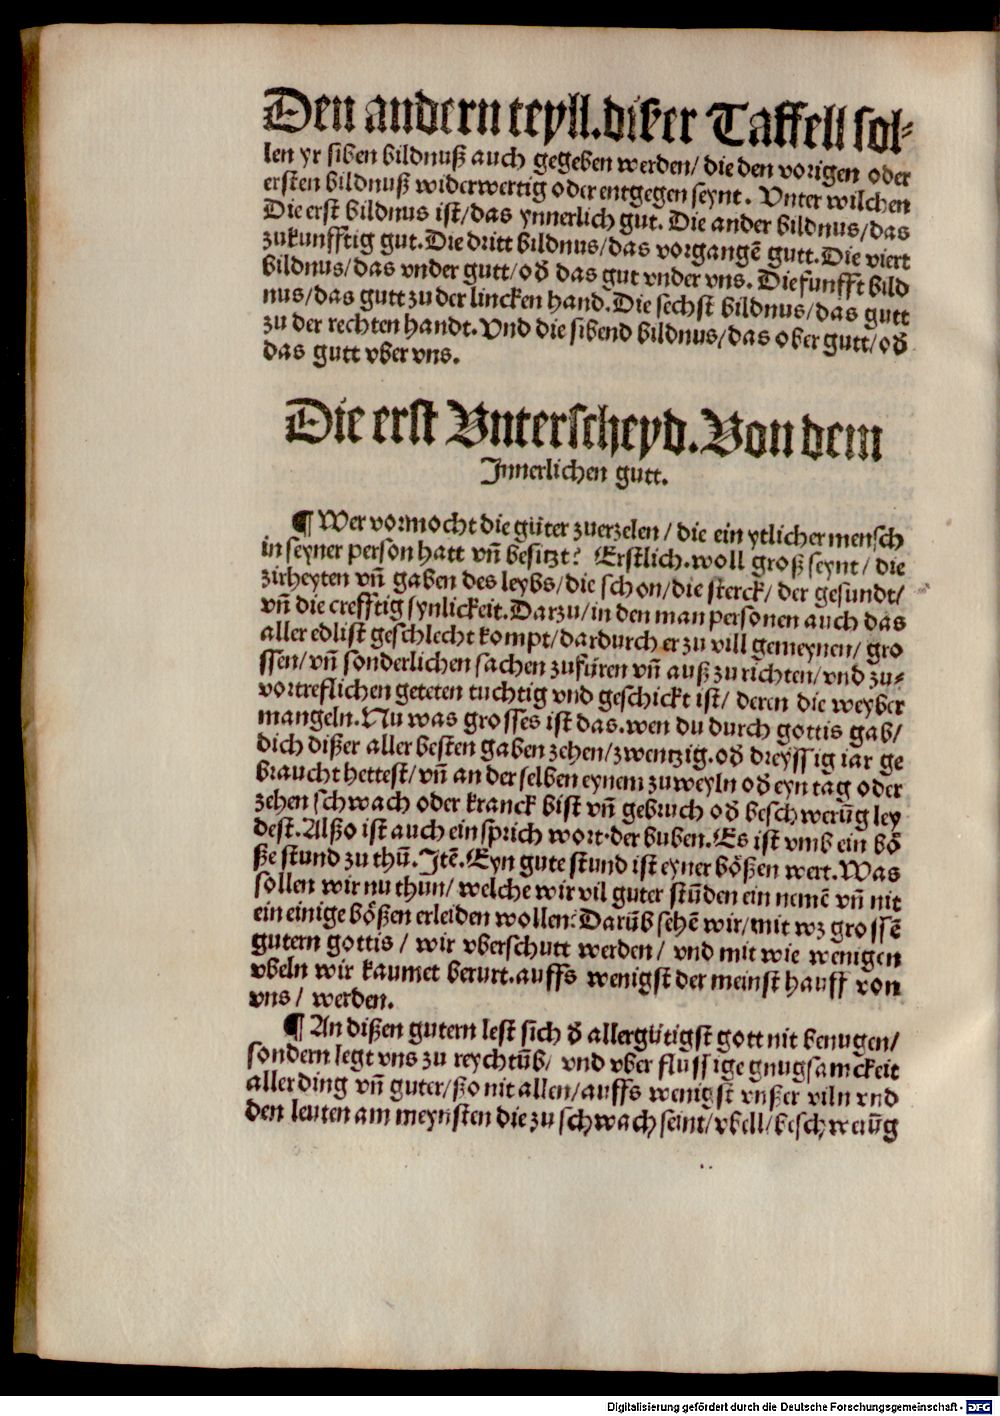 Den andern teyll. dißer Taffell sol⸗
len yr siben bildnuß auch gegeben werden/ die den vorigen oder
ersten bildnuß widerwertig oder entgegen seynt. Vnter wilchen
Die erst bildnus ist/das ynnerlich gut. Die ander bildnus/das
zukunfftig gut. Die dritt bildnus/das vorgangē gutt. Die viert
bildnus/das vnder gutt/oď das gut vnder vns. Die funfft bild
nus/das gutt zu der lincken hand. Die sechst bildnus/das gutt
zu der rechten handt. Vnd die sibend bildnus/das ober gutt/oď
das gutt vber vns.
Die erst Vnterscheyd. Von dem
Innerlichen gutt.
¶ Wer vormocht die gůter zuerzelen/ die ein ytlicher mensch
in seyner person hatt vn̄ besitzt? Erstlich. woll groß seynt/ die
zirheyten vn̄ gaben des leybs/die schon/die sterck/ der gesundt/
vn̄ die crefftig synlickeit. Darzu/in den man personen auch das
aller edlist geschlecht kompt/dardurch er zu vill gemeynen/ gro
ssen/vn̄ sonderlichen sachen zufůren vn̄ auß zu richten/vnd zu⸗
vortreflichen geteten tuchtig vnd geschickt ist/ deren die weyber
mangeln. Nu was grosses ist das. wen du durch gottis gab/
dich dißer aller besten gaben zehen/zwentzig. oď dreyssig iar ge
braucht hettest/vn̄ an der selben eynem zuweyln oď eyn tag oder
zehen schwach oder kranck bist vn̄ gebruch oď beschwerūg ley
dest. Alßo ist auch ein sprich wort. der buben. Es ist vmb ein bő
ße stund zu thū. Jtē. Eyn gute stund ist eyner bőßen wert. Was
sollen wir nu thun/ welche wir vil guter stūden ein nemē vn̄ nit
ein einige bőßen erleiden wollen? Darūb sehē wir/mit wz grossē
gutern gottis/ wir vberschutt werden/ vnd mit wie wenigen
vbeln wir kaumet berurt. auffs wenigst der meinst hauff von
vns/ werden.
¶ An dißen gutern lest sich ď allergůtigst gott nit benugen/
sondern legt vns zu reychtūb/ vnd vber flussige gnugsamckeit
aller ding vn̄ guter/ßo nit allen/auffs wenigst vnßer viln vnd
den leuten am meynsten die zu schwach seint/vbell/beschwerūg
Digitalisierung gefördert durch die Deutsche Forschungsgemeinschaft - DFG